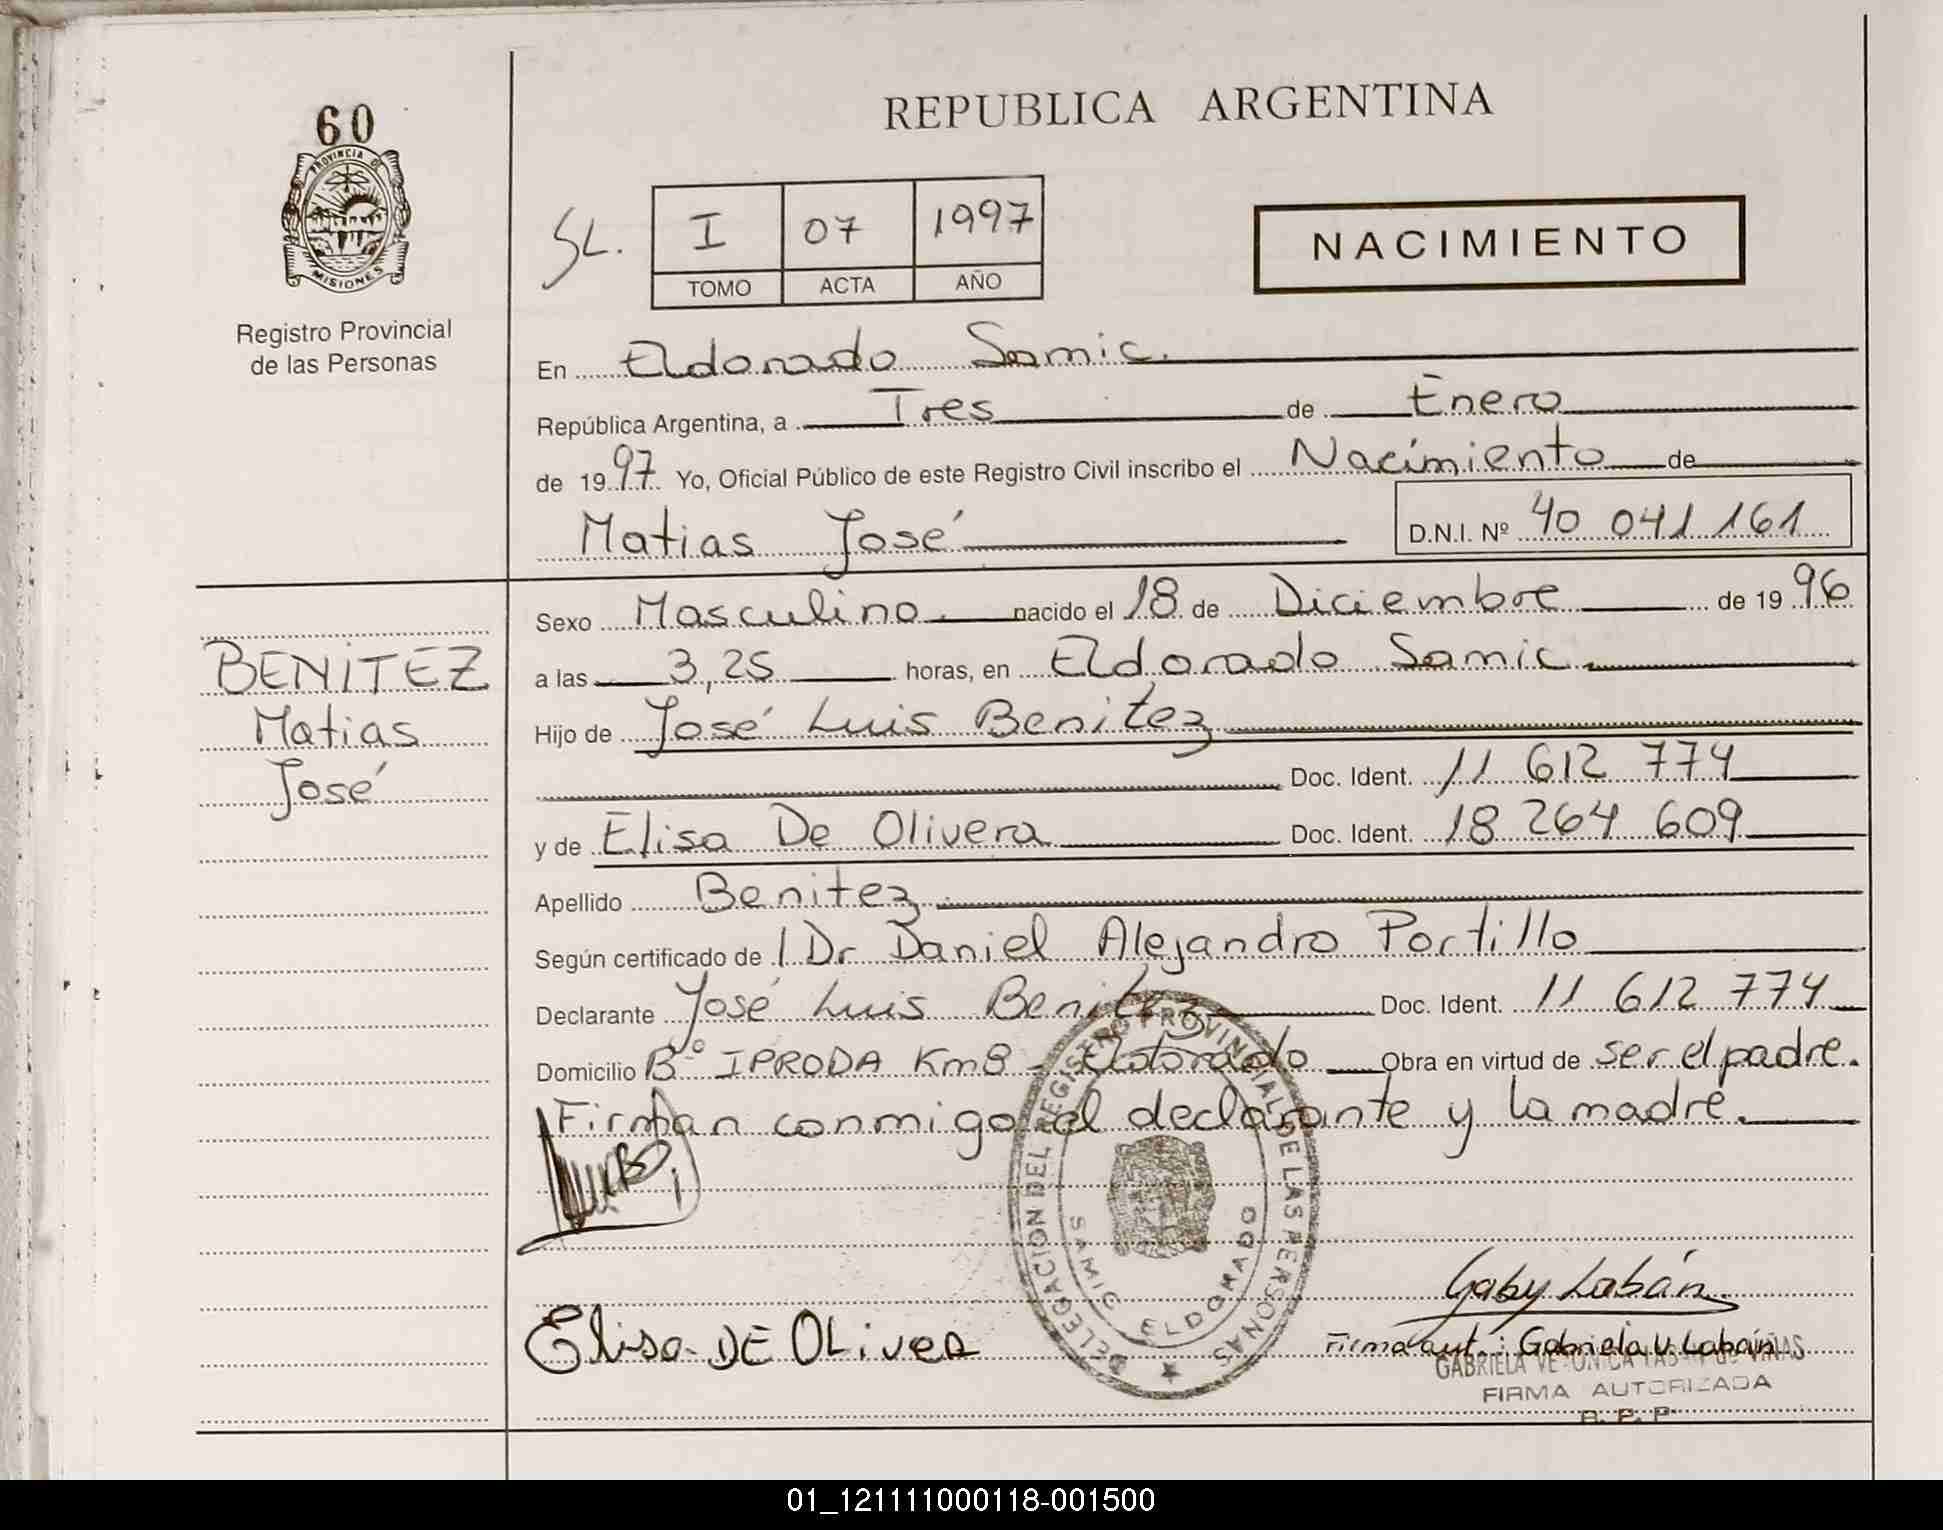 60
PROVINCIA DE
MISIONES
Registro Provincial
de las Personas
REPUBLICA ARGENTINA
SL. I 07 1997
TOMO ACTA AÑO
NACIMIENTO
En Eldorado Samic.
República Argentina, a Tres de Enero
de 1997 Yo, Oficial Público de este Registro Civil inscribo el Nacimiento de
Matias José D.N.I. Nº 40 041 161
BENITEZ
Matias
José
Sexo Masculino. nacido el 18 de Diciembre de 1996
a las 3,25 horas, en Eldorado Samic.
Hijo de José Luis Benitez
Doc. Ident. 11 612 774
y de Elisa De Olivera Doc. Ident. 18 264 609
Apellido Benitez
Según certificado de l Dr Daniel Alejandro Portillo
Declarante José Luis Benitez Doc. Ident. 11 612 774
Domicilio Bº IPRODA Km8 - Eldorado Obra en virtud de ser el padre.
Firman conmigo el declarante y la madre.
DELEGACION DEL REGISTRO PROVINCIAL DE LAS PERSONAS
SAMIC ELDORADO
Gaby Labán
Elisa DE OLiveR
Firma aut.: Gabriela V. Labán
GABRIELA VERONICA LABAN de VIÑAS
FIRMA AUTORIZADA
R. P. P.
01_121111000118-001500